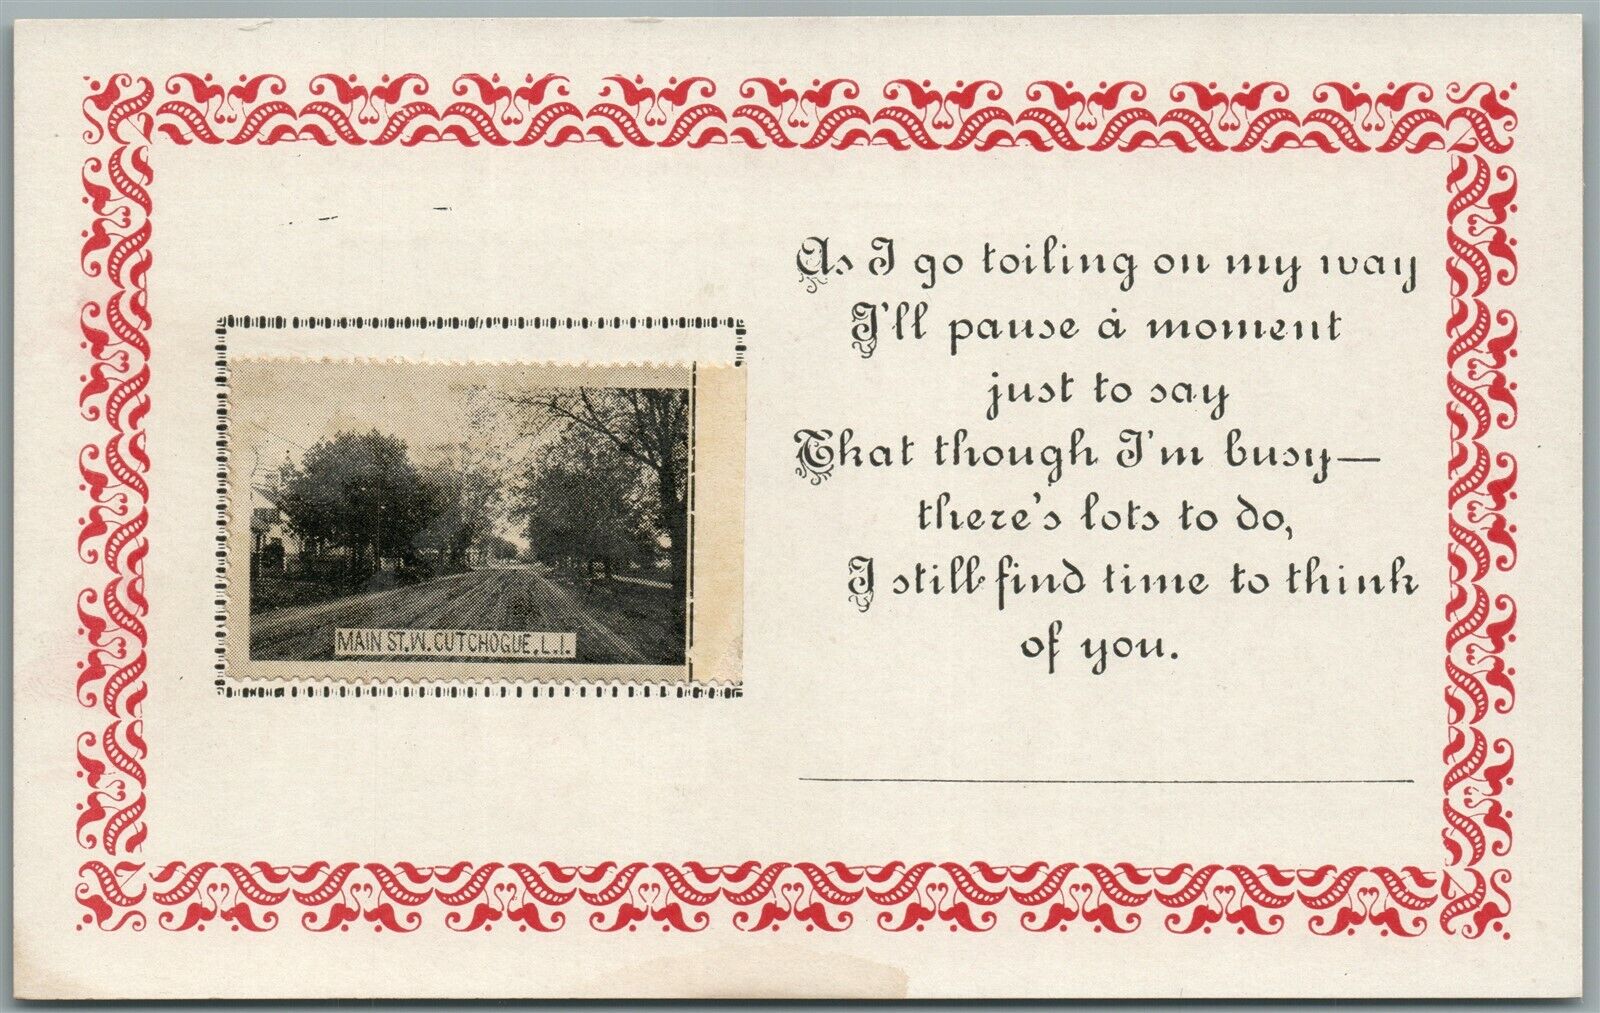 MAIN ST. W. CUTCHOGUE, L.I.
As I go toiling on my way
I'll pause á moment
just to say
That though I'm busy—
there's lots to do,
I still find time to think
of you.